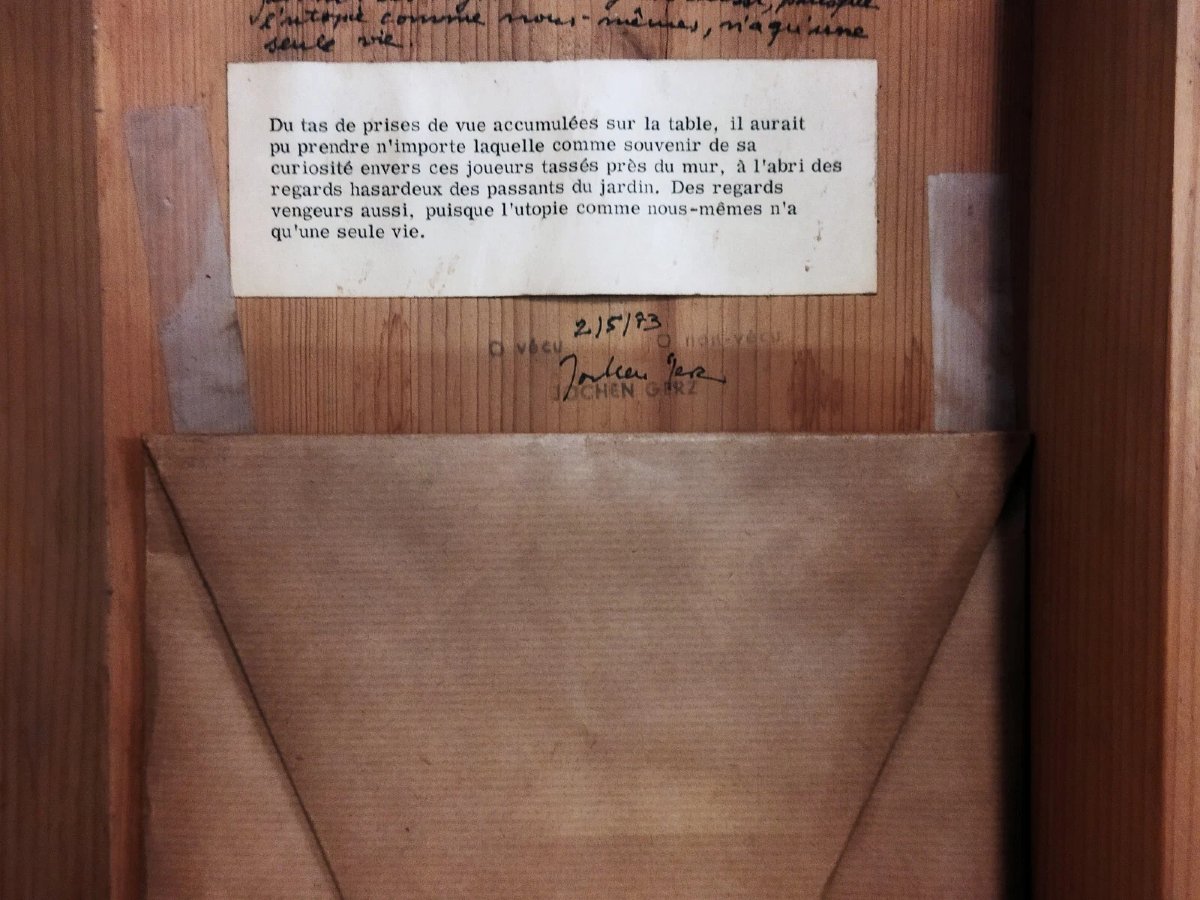 puisque
l'utopie comme nous-mêmes, n'a qu'une
seule vie.
Du tas de prises de vue accumulées sur la table, il aurait
pu prendre n'importe laquelle comme souvenir de sa
curiosité envers ces joueurs tassés près du mur, à l'abri des
regards hasardeux des passants du jardin. Des regards
vengeurs aussi, puisque l'utopie comme nous-mêmes n'a
qu'une seule vie.
2/5/73
O vécu O non-vécu
Jochen Gerz
JOCHEN GERZ